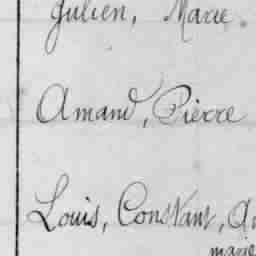 Julien, Marie
Amand, Pierre
Louis, Constant,
marie